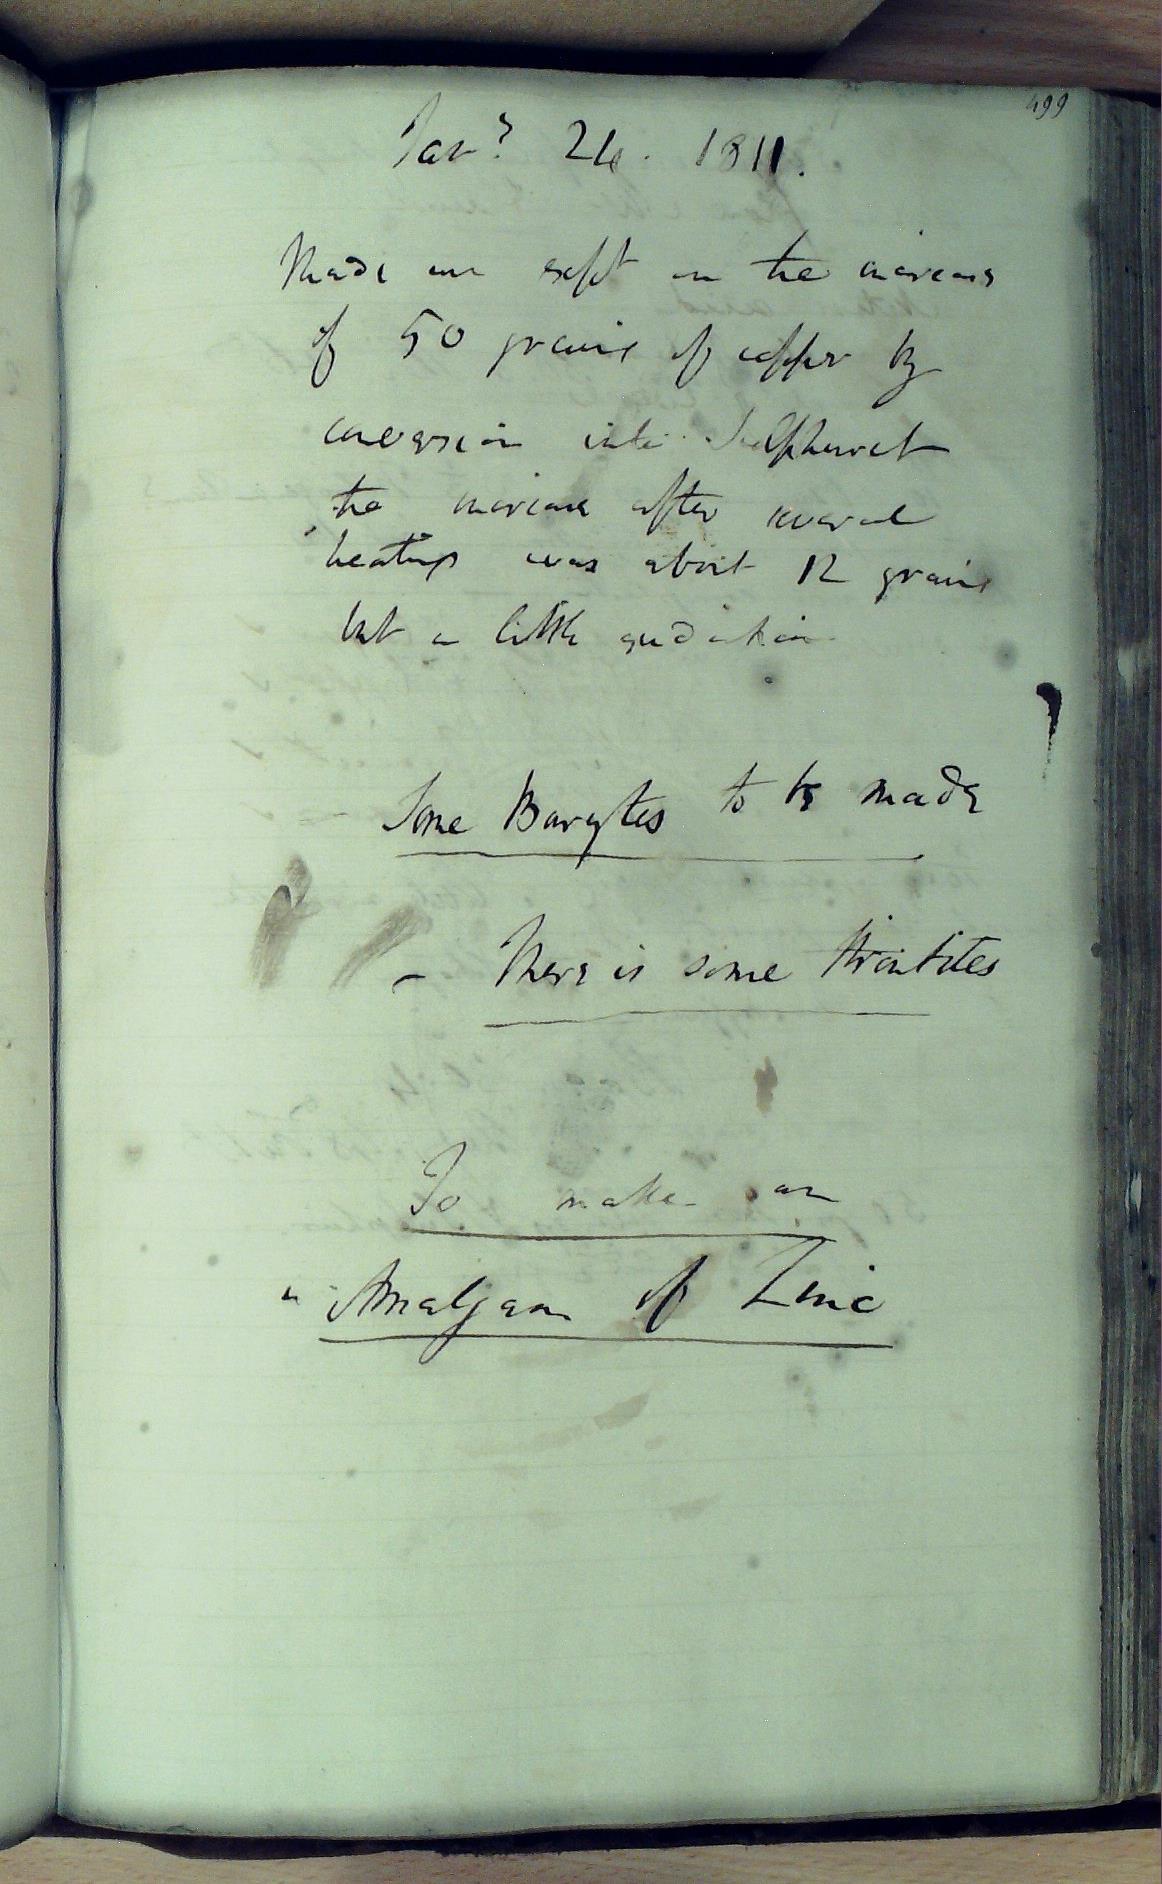 499
Jany 24. 1811.
Made an expt on the increase
of 50 grains of copper by
conversion into Sulphuret
the increase after several
heatings was about 12 grains
but a little oxidation
Some Barytes to be made
- There is some Strontites
To make an
Amalgam of Zinc